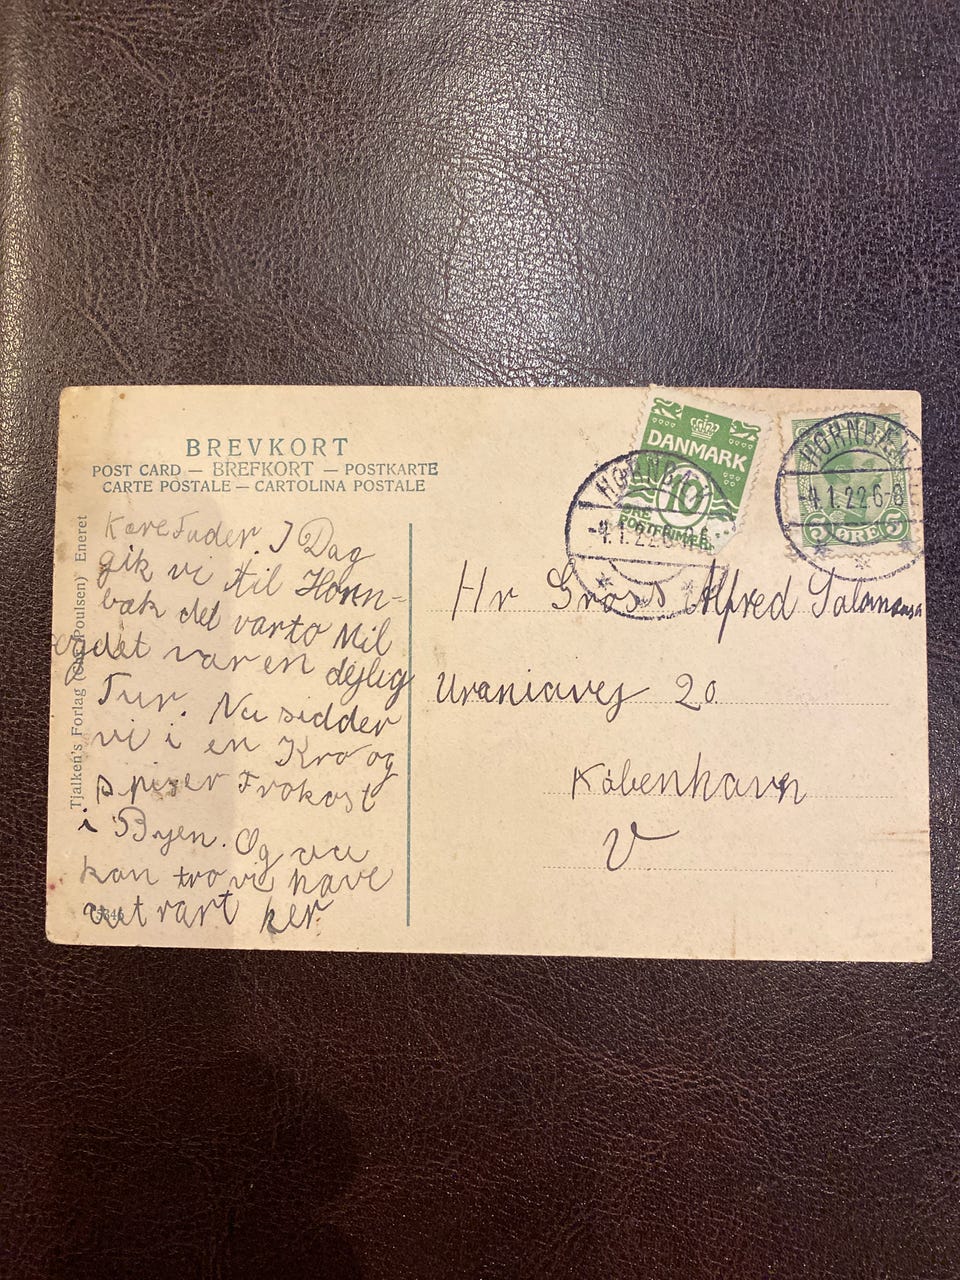 BREVKORT
POST CARD — BREFKORT — POSTKARTE
CARTE POSTALE — CARTOLINA POSTALE
Tjalken's Forlag ( Poulsen) Eneret
Kære Fader. I Dag
gik vi til Horn-
bæk det var to Mil
og det var en dejlig
Tur. Nu sidder
vi i en Kro og
spiser Frokost
i Byen. Og
kan tro vi have
rart her
DANMARK
10
ØRE
POSTFRIMÆRKE
HORNBÆK
-4.1.22.6-8
HORNBÆK
-4.1.22.6-8
5 ØRE 5
Hr Gross Alfred Salomonsen
Uraniavej 20.
København
V